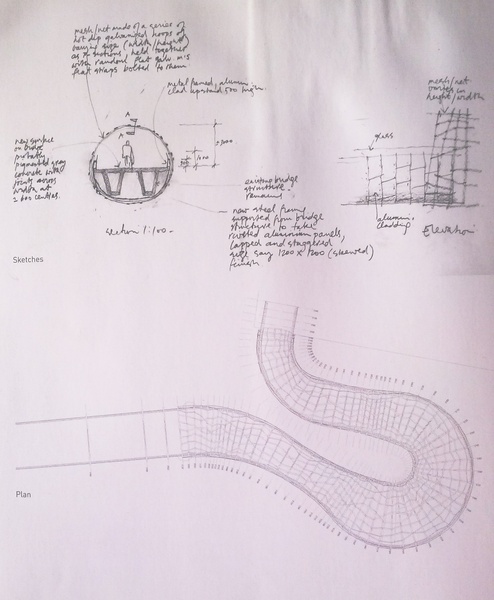 mesh/net made of a series of
hot dip galvanized hoops of
varying size (width/height)
as sections, held together
with random flat galv m.s
flat straps bolted to them.
metal framed, alumin.
clad upstand 500 high.
mesh/net
varies in
height/width
new surface
on bridge
probably
pigmented grey
concrete with
joints across
width at
centres.
glass
existing bridge
structure
remains
new steel frame
supported from bridge
structure to take
riveted aluminium panels,
lapped and staggered
size say 1200 x 1200 (skewed)
finish.
section 1:100.
alumin.
cladding
Elevation
Sketches
Plan